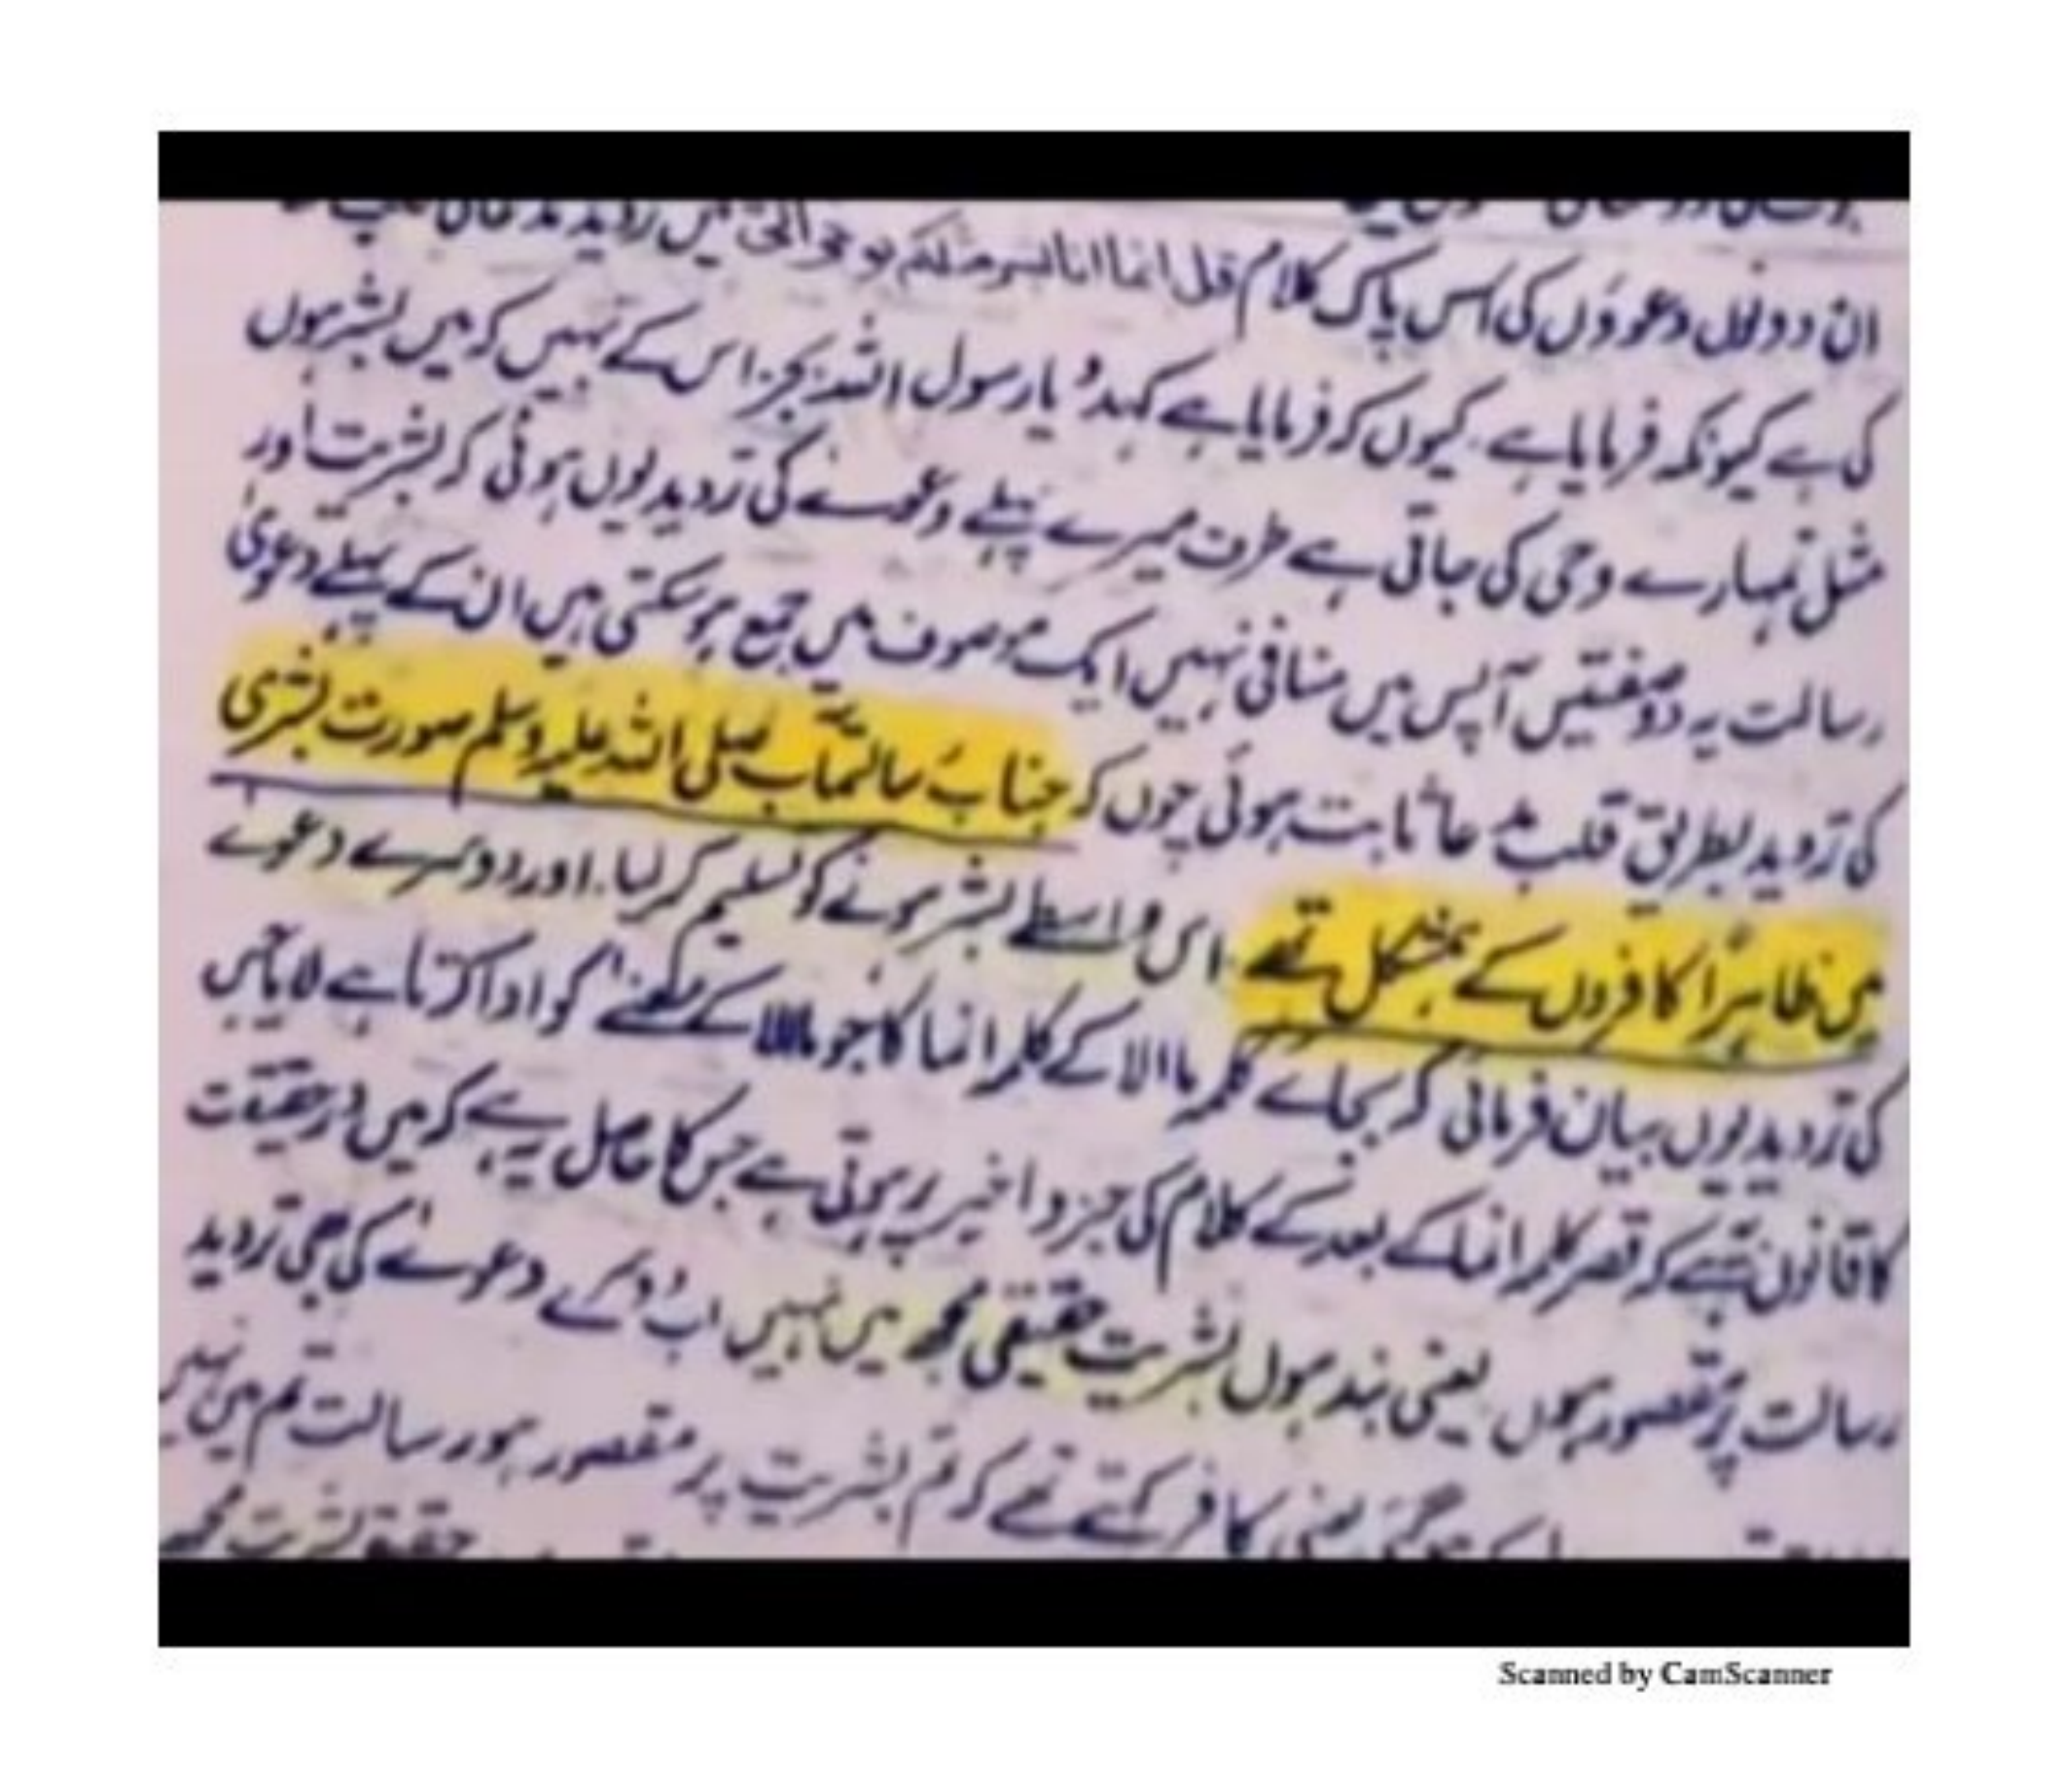 ان دونوں دعووں کی اس پاک کلام قل انما انا بشر مثلکم یوحی الی میں تردید
کی ہے کیونکہ فرمایا ہے کیوں کر فرمایا ہے کہدو یا رسول اللہ بجز اس کے نہیں کہ میں بشر ہوں
مثل تمہارے وحی کی جاتی ہے طرف میرے پہلے دعوے کی تردید یوں ہوئی کہ بشریت اور
رسالت یہ دو صفتیں آپس میں منافی نہیں ایک موصوف میں جمع ہو سکتی ہیں ان کے پہلے دعویٰ
کی تردید بطریق قلب ثابت ہوئی چوں کہ جناب رسالتمآب صلی اللہ علیہ وسلم صورت بشری
میں ظاہراً کافروں کے ہمشکل تھے اس واسطے بشر ہونے کو تسلیم کر لیا۔ اور دوسرے دعوے
کی تردید یوں بیان فرمائی کہ بجائے کلمہ ما الا کے کلمہ انما کا جو ما الا کے معنے کو ادا کرتا ہے لایا جس
کا قانون ہے کہ قصر کلمہ انما کے بعد کے کلام کی جزو اخیر پر ہوتی ہے جس کا حاصل یہ ہے کہ میں درحقیقت
رسالت پر مقصور ہوں یعنی بند ہوں بشریت حقیقی مجھ میں نہیں اب ان کے دعوے کی بھی تردید
ہو گئی یعنی کافر کہتے تھے کہ تم بشریت پر مقصور ہو رسالت تم میں نہیں
بشریت مجھ
Scanned by CamScanner